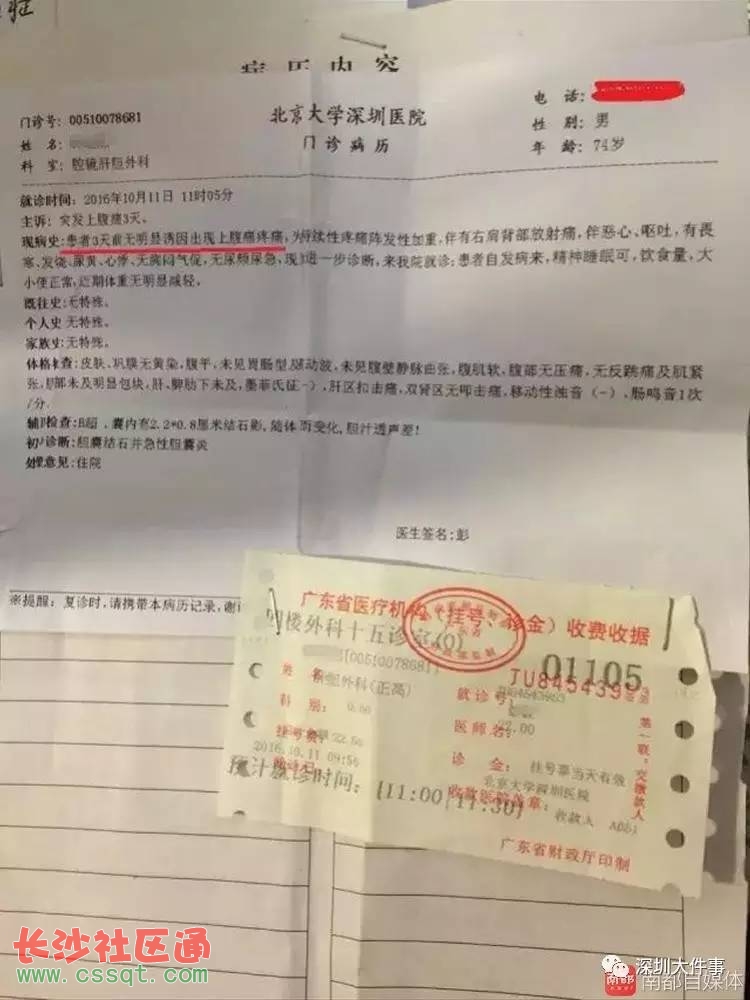 症
病历内容
门诊号: 00510078681
北京大学深圳医院
电 话:
姓 名:
门诊病历
性 别: 男
科 室: 腔镜肝胆外科
年 龄: 74岁
就诊时间: 2016年10月11日 11时05分
主诉: 突发上腹痛3天。
现病史:患者3天前无明显诱因出现上腹痛疼痛,为持续性疼痛阵发性加重,伴有右肩背部放射痛,伴恶心、呕吐,有畏
寒、发烧、尿黄、心悸、无胸闷气促,无尿频尿急,现进一步诊断,来我院就诊;患者自发病来,精神睡眠可,饮食量,大
小便正常,近期体重无明显减轻。
既往史:无特殊。
个人史 无特殊。
家族史:无特殊。
体格检查:皮肤、巩膜无黄染,腹平,未见胃肠型及蠕动波,未见腹壁静脉曲张,腹肌软,腹部无压痛,无反跳痛及肌紧
张,腹部未及明显包块,肝、脾肋下未及,墨菲氏征(-),肝区扣击痛,双肾区无叩击痛,移动性浊音(-),肠鸣音1次
/分.
辅助检查:B超 、囊内有2.2*0.8厘米结石影,随体而变化,胆汁透声差!
初步诊断:胆囊结石并急性胆囊炎
处理意见:住院
医生签名:彭
※提醒: 复诊时,请携带本病历记录,谢
广东省医疗机构(挂号、诊金)收费收据
四楼外科十五诊室(0)
01105
[00510078681]
JU8454393
姓 名:
外科(正高)
就诊号:
科 别: 0.00
医师名: 22.00
挂号费: 22.50
诊 金: 挂号票当天有效
2016.10.11 09:56
北京大学深圳医院
预计就诊时间: [11:00 11:30]
收款医院盖章: 收款人 A051
第一联:交缴款人
广东省财政厅印制
长沙社区通
www.cssqt.com
深圳大件事
南都 南都自媒体